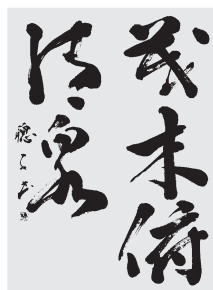 茂木俯
清泉